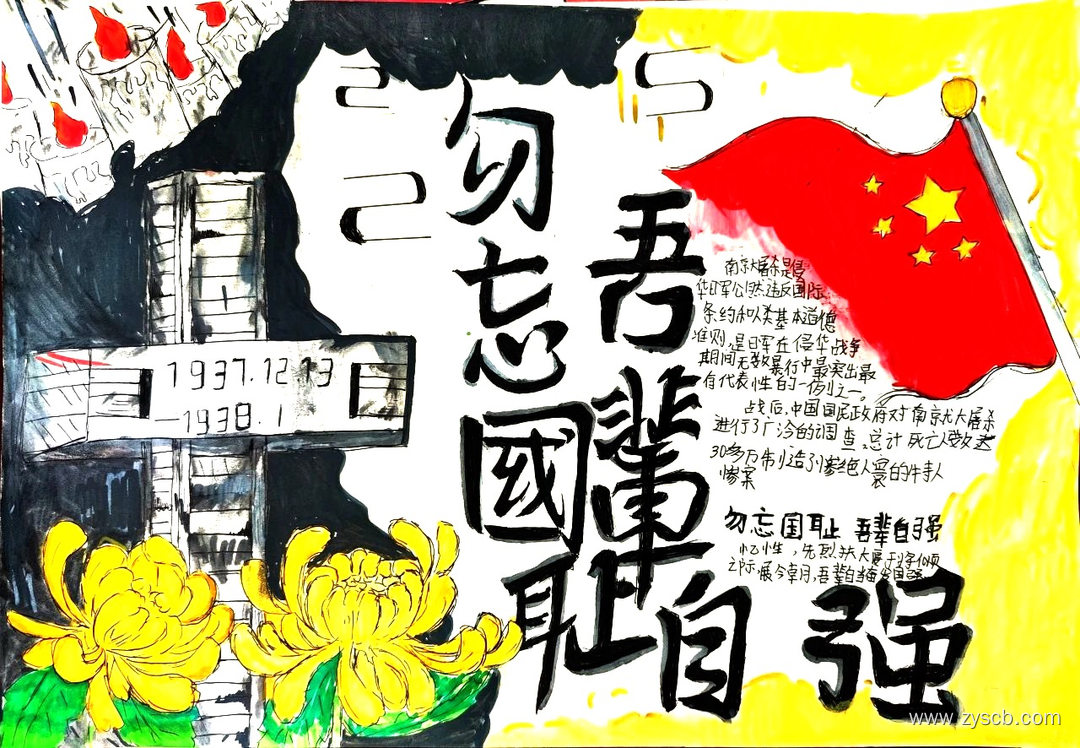 勿忘國耻
吾輩自强
1937.12.13
1938.1
南京大屠杀是侵
华日军公然违反国际
条约和人类基本道德
准则,是日军在侵华战争
期间无数暴行中最突出最
有代表性的一例之一。
战后,中国国民政府对南京大屠杀
进行了广泛的调查,总计死亡人数达
30多万制造了惨绝人寰的
惨案
勿忘国耻 吾辈自强
忆往昔,先烈扶大厦于将倾
之际,展今朝,吾辈自当奋发国强
www.zyscb.com